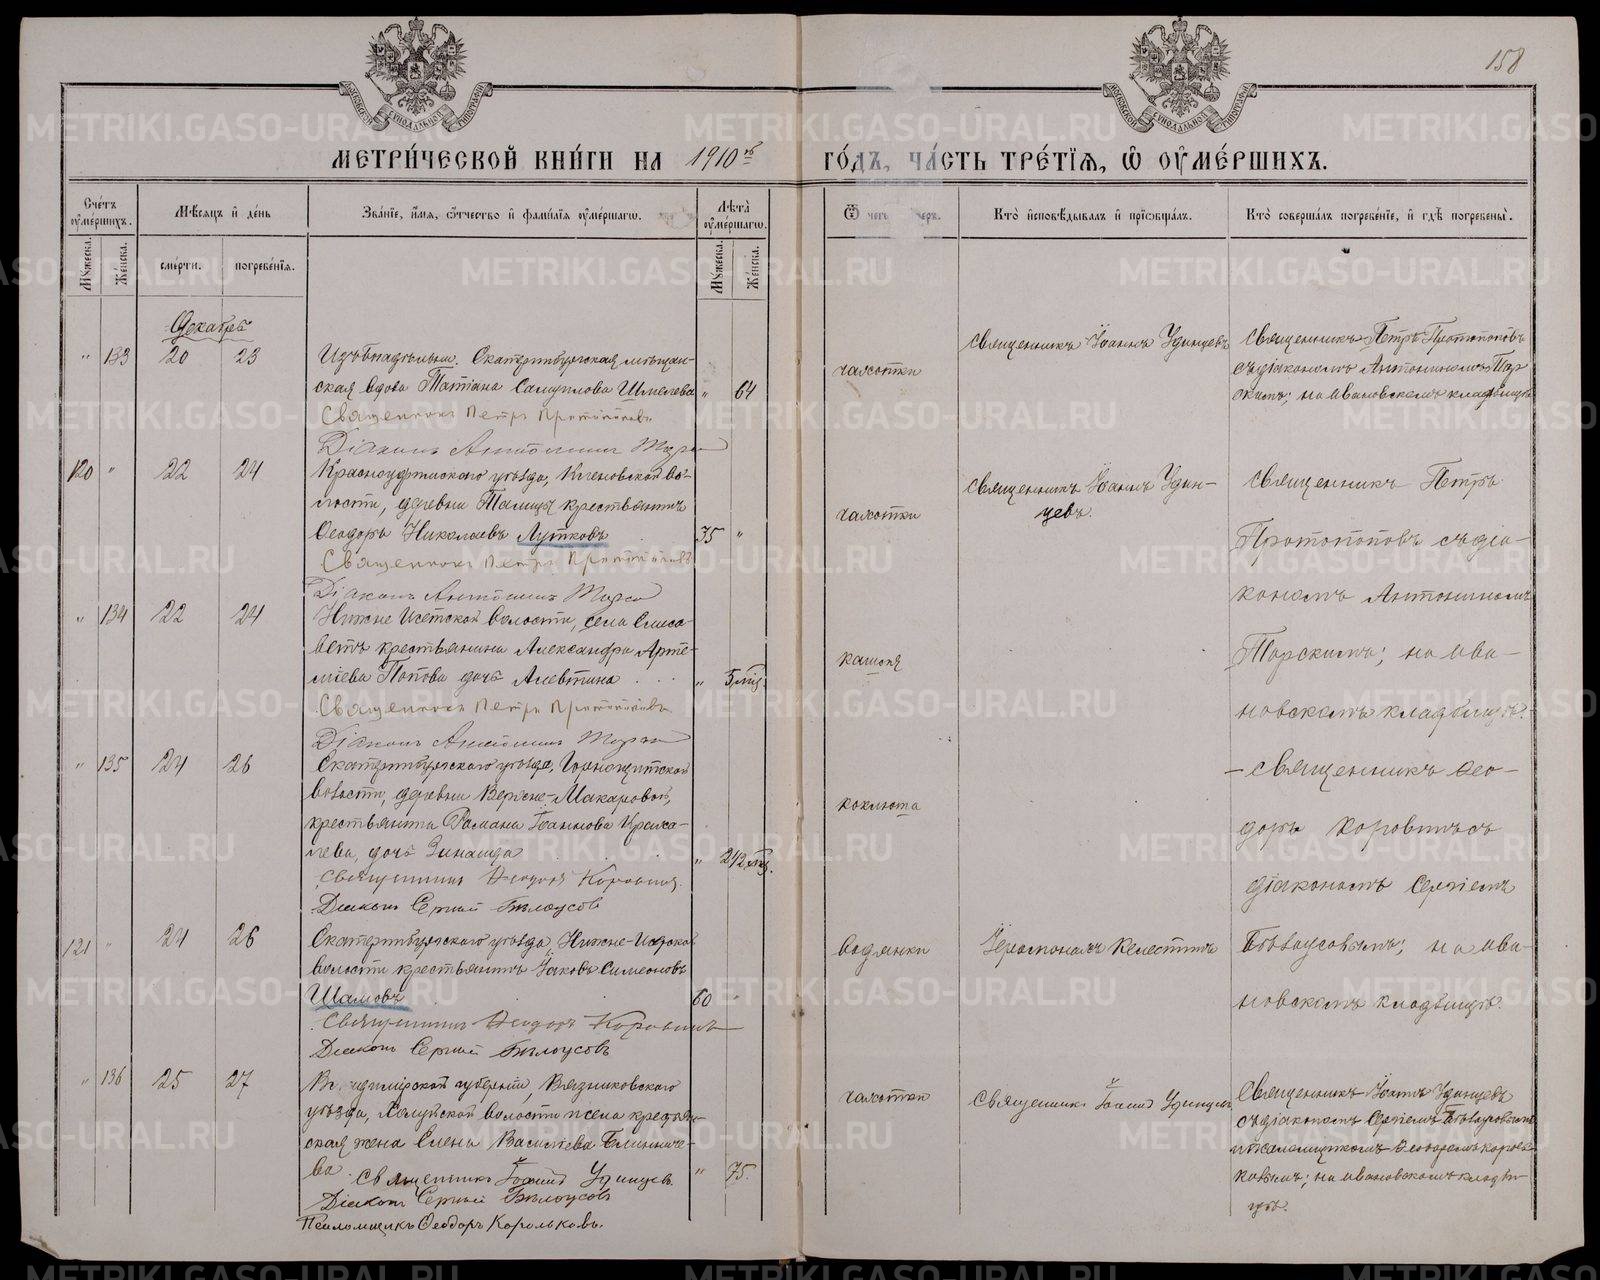 158
МЕТРИ́ЧЕСКОЙ КНИ́ГИ НА 1910 й
ГО́ДЪ, ЧА́СТЬ ТРЕ́ТІЯ, Ѡ ОУМЕ́РШИХЪ.
Сче́тъ оуме́ршихъ.
Мѣсяцъ и де́нь
Зва́ніе, и́мя, о́тчество и фами́лія оуме́ршагѡ.
Лѣта̀ оуме́ршагѡ.
Ѿ чегѡ
Кто̀ исповѣ́дывалъ и пріѡбща́лъ.
Кто̀ соверша́лъ погребе́ніе, и гдѣ̀ погребены̀.
Му́жеска.
Же́нска.
сме́рти.
погребе́нія.
Му́жеска.
Же́нска.
Декабрь
" 133 20 23
Екатеринбургская мѣщан-
ская вдова Татіана Самуилова Шмелева " 64
Священникъ Петръ Протопоповъ
Діаконъ Антонинъ
чахотки
Священникъ Іоаннъ Удинцевъ
Священникъ Петръ Протопоповъ
съ діакономъ Антониномъ Тор-
скимъ; на Ивановскомъ кладбищѣ
120 " 22 24
Красноуфимскаго уѣзда, Кленовской во-
лости, деревни Талицы крестьянинъ
Ѳеодоръ Николаевъ Лутковъ 35 "
Священникъ Петръ Протопоповъ
Діаконъ Антонинъ
чахотки
Священникъ Іоаннъ Удин-
цевъ.
Священникъ Петръ
Протопоповъ съ діа-
кономъ Антониномъ
Торскимъ; на Ива-
новскомъ кладбищѣ.
" 134 22 24
Нижне Исетской волости, села Елиса-
ветъ крестьянина Александра Арте-
міева Попова дочь Алевтина " 5 мѣс.
Священникъ Петръ Протопоповъ
Діаконъ Антонинъ
кашля
" 135 24 26
Екатеринбургскаго уѣзда, Горнощитской
волости, деревни Верхне-Макаровой,
крестьянина Романа Іоаннова
лева, дочь Зинаида " 2 1/2 мѣс.
Священникъ Ѳеодоръ Коровинъ
Діаконъ Сергій Бѣлоусовъ
коклюша
Священникъ Ѳео-
доръ Коровинъ съ
діакономъ Сергіемъ
Бѣлоусовымъ; на Ива-
новскомъ кладбищѣ.
121 " 24 26
Екатеринбургскаго уѣзда, Нижне-Исетской
волости крестьянинъ Іаковъ Симеоновъ
Шамовъ 60 "
Священникъ Ѳеодоръ Коровинъ
Діаконъ Сергій Бѣлоусовъ
водянки
Іеромонахъ Келестинъ
" 136 25 27
Владимірской губерніи, Вязниковскаго
уѣзда, Холуйской волости и села крестьян-
ская жена Елена Василіева Блиничe-
ва. " 75.
Священникъ Іоаннъ Удинцевъ
Діаконъ Сергій Бѣлоусовъ
Псаломщикъ Ѳеодоръ Корольковъ.
чахотки
Священникъ Іоаннъ Удинцевъ
Священникъ Іоаннъ Удинцевъ
съ діакономъ Сергіемъ Бѣлоусовымъ
и псаломщикомъ Ѳеодоромъ Король-
ковымъ; на Ивановскомъ кладби-
щѣ.
METRIKI.GASO-URAL.RU